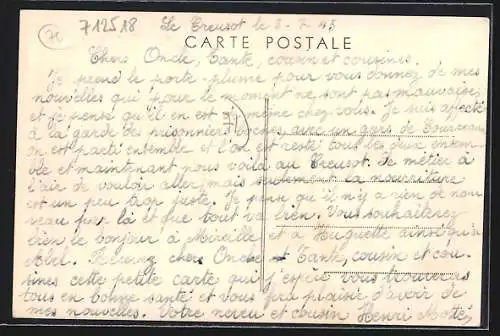 712518 Le Creusot le 8-7-45
CARTE POSTALE
Chers Oncle, Tante, cousin et cousines.
Je prend le porte-plume pour vous donnez de mes
nouvelles qui pour le moment ne sont pas mauvaises
et je pense qu'il en est de même chez vous. Je suis affecté
à la garde des prisonniers boches avec un gars de
on est parti ensemble et l'on est resté tous les deux ensem-
ble et maintenant nous voilà au Creusot. Le métier à
l'air de vouloir aller, mais seulement la nourriture
est un peu trop juste. Je pense qu'il n'y a rien de nou-
veau par là et que tout va bien. Vous souhaiterez
bien le bonjour à Mireille et a Huguette ainsi qu'a
Abel. Recevez chers Oncle et Tante, cousin et cou-
sines cette petite carte qui j'espère vous trouveras
tous en bonne santé et vous fera plaisir d'avoir de
mes nouvelles. Votre neveu et cousin Henri